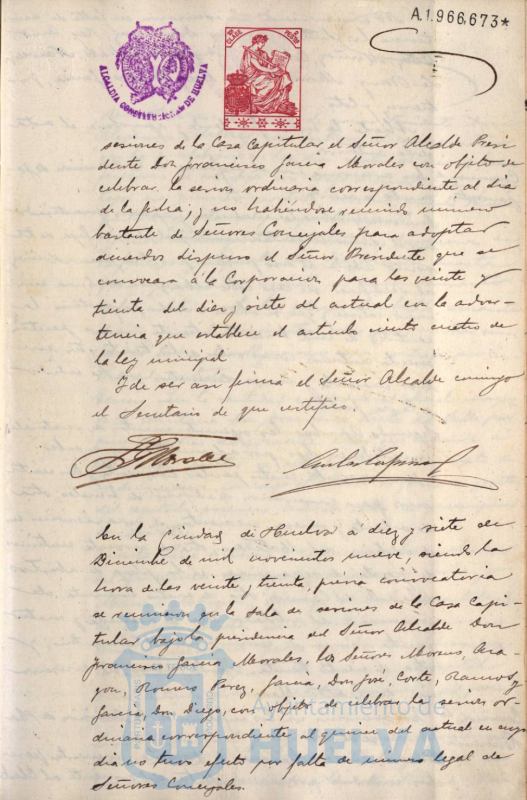 A.1.966,673*
ALCALDIA CONSTITUCIONAL DE HUELVA
sesiones de la Casa Capitular el Señor Alcalde Presi
dente Don Francisco García Morales con objeto de
celebrar la sesion ordinaria correspondiente al dia
de la fecha; y no habiéndose reunido número
bastante de Señores Concejales para adoptar
acuerdos dispuso el Señor Presidente que se
convocara á la Corporacion para las veinte y
treinta del diez y siete del actual con la adver-
tencia que establece el artículo ciento cuatro de
la ley municipal
Y de ser así firma el Señor Alcalde conmigo
el Secretario de que certifico.
F. G. Morales
En la Ciudad de Huelva á diez y siete de
Diciembre de mil novecientos nueve, siendo la
hora de las veinte y treinta, previa convocatoria
se reunieron en la sala de sesiones de la Casa Capi-
tular bajo la presidencia del Señor Alcalde Don
Francisco García Morales, los Señores Moreno, Ara-
gon, Romero Perez, García, Don José, Corte, Ramos y
García, Don Diego, con objeto de celebrar la sesion or-
dinaria correspondiente al quince del actual en cuyo
dia no tuvo efecto por falta de número legal de
Señores Concejales.
Ayuntamiento de
HUELVA